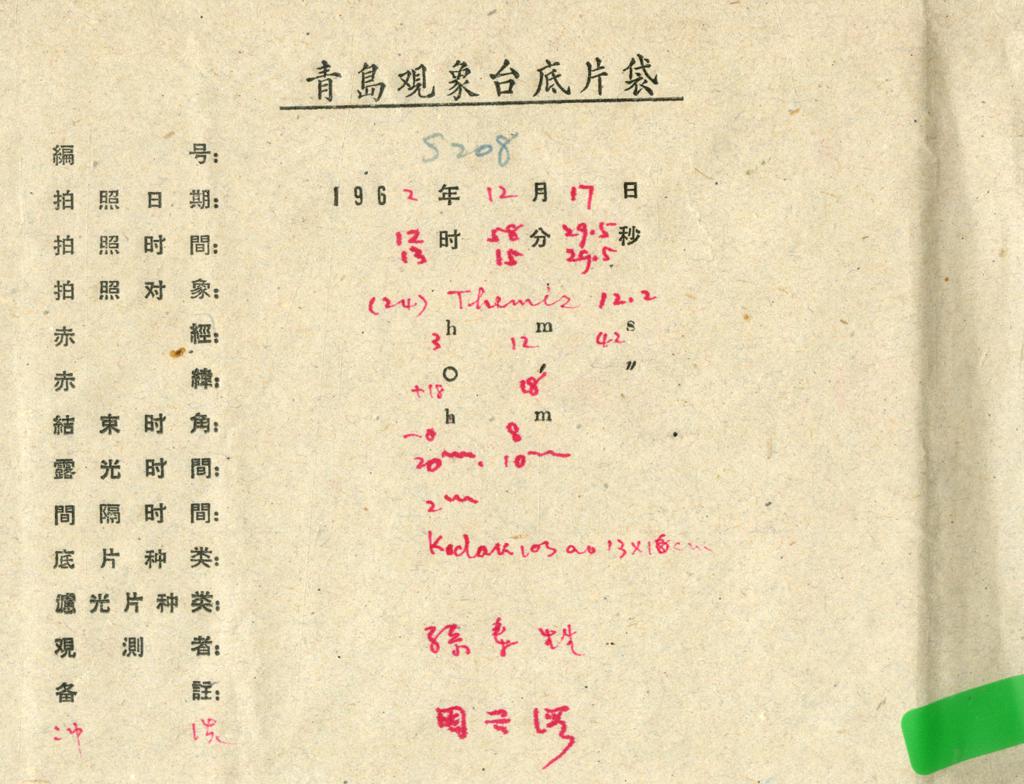 青島观象台底片袋
編号: S208
拍照日期: 1962年12月17日
拍照时間: 12时58分29.5秒
13 15 29.5
拍照对象: (24) Themis 12.2
赤經: 3h 12m 42s
赤緯: +18° 18′ ″
結束时角: -0h 8m
露光时間: 20m. 10m
間隔时間: 2m
底片种类: Kodak 103 a0 13×18cm
濾光片种类:
观測者: 孫
备註:
冲洗 周